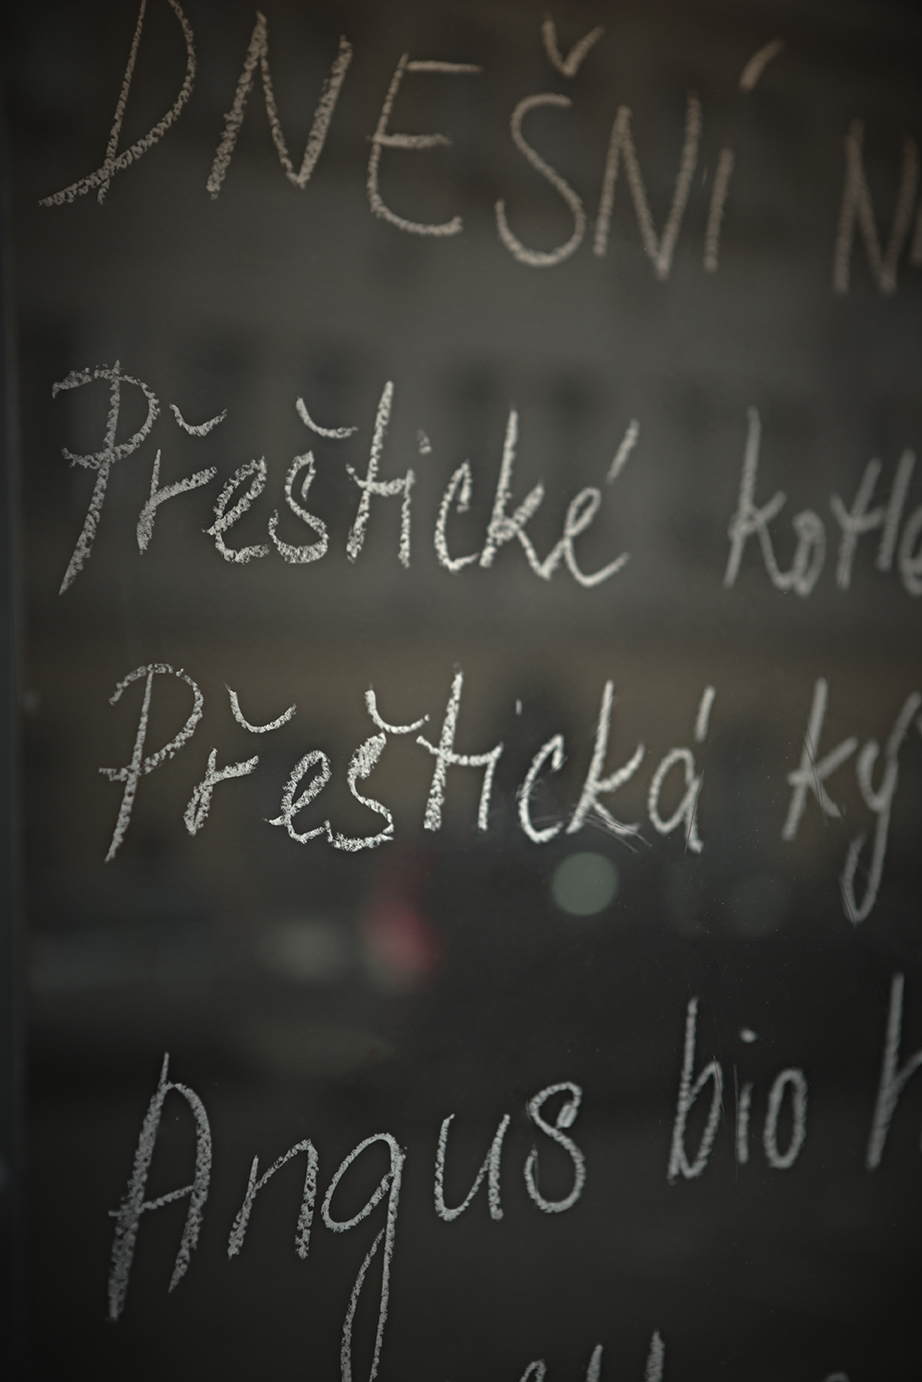 DNEŠNÍ N
Přeštické kotle
Přeštická ký
Angus bio